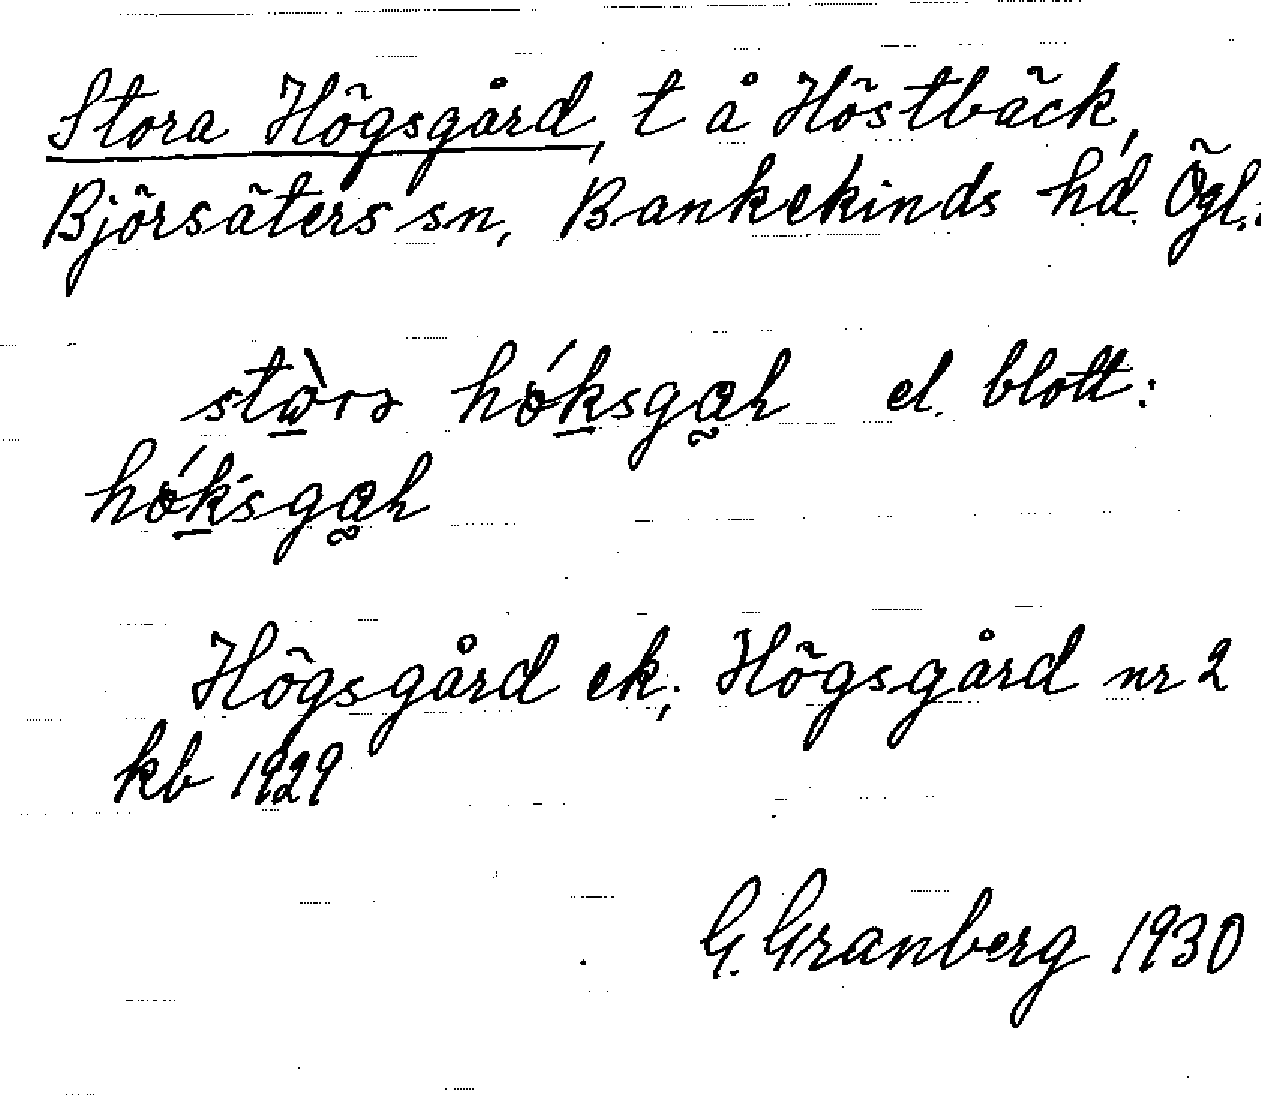 Stora Högsgård, t å Höstbäck,
Björsäters sn, Bankekinds hd. Ögl.
el. blott:
Högsgård ek; Högsgård nr 2
kb 1929
G. Granberg 1930